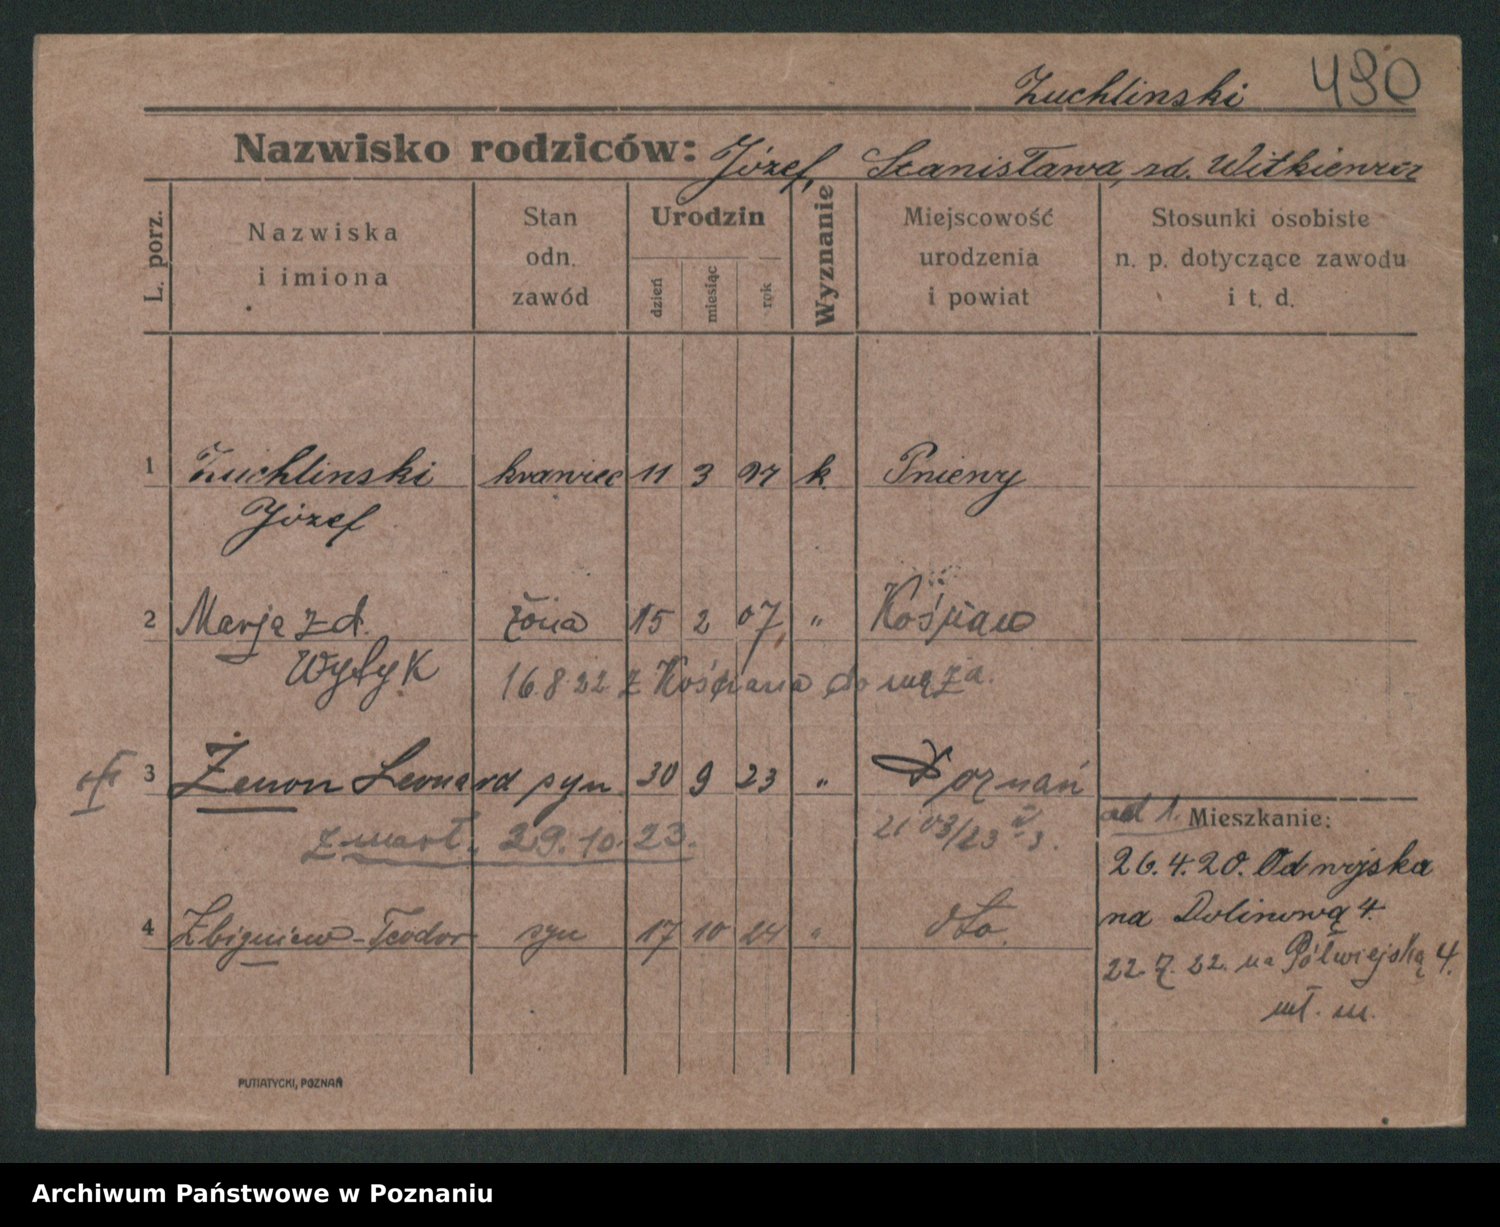 Żuchlinski 490
Nazwisko rodziców: Józef, Stanisława, zd. Witkiewicz
L. porz.
Nazwiska i imiona
Stan odn. zawód
Urodzin
dzień miesiąc rok
Wyznanie
Miejscowość urodzenia i powiat
Stosunki osobiste n. p. dotyczące zawodu i t. d.
1 Żuchlinski krawiec 11 3 97 k. Pniewy
Józef
2 Marja z d. żona 15 2 07 " Kościan
Wytyk
16.8.22 z Kościana do męża.
3 Żenon Leonard syn 30 9 23 " Poznań
zmarł. 29.10.23.
4 Zbigniew-Teodor syn 17 10 24 " dto.
ad 1. Mieszkanie:
26.4.20. Od wojska
na Dolinową 4
22.7.22. na Półwiejską 4.
mł. m.
PUTIATYCKI, POZNAŃ
Archiwum Państwowe w Poznaniu